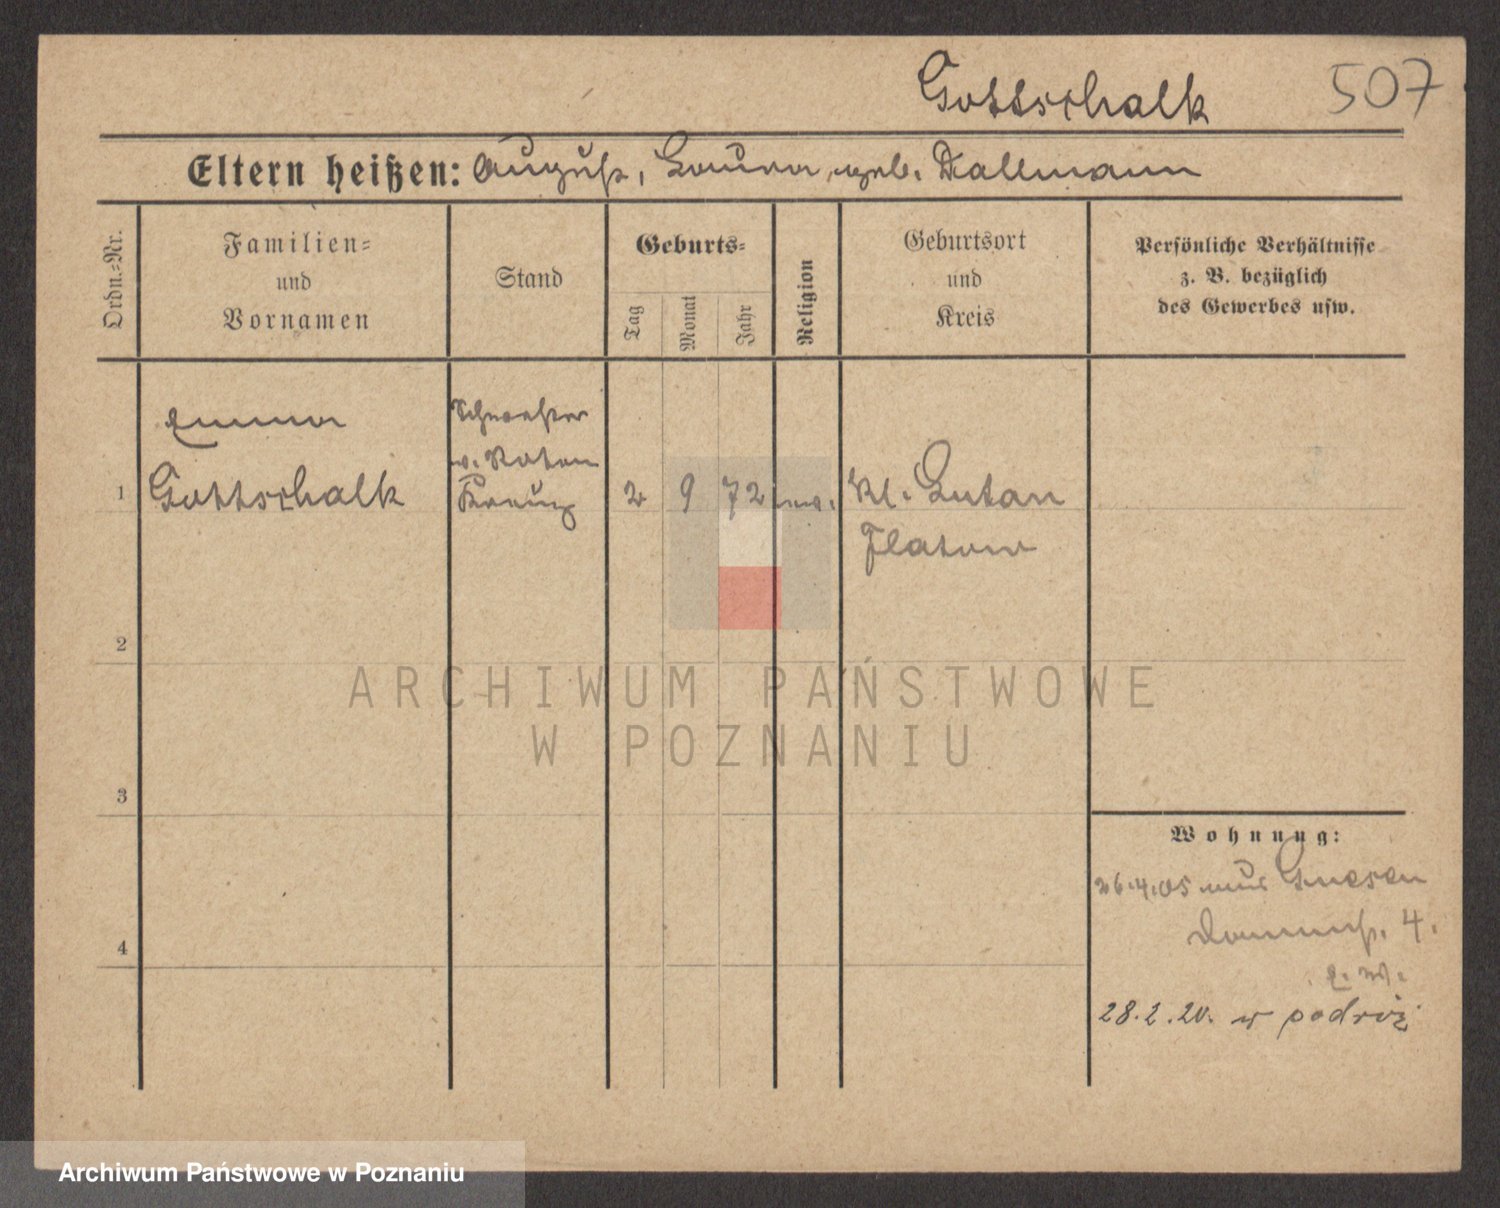 Gottschalk 507
Eltern heißen: August, Laura, geb. Dallmann
Ordn.=Nr.
Familien=
und
Vornamen
Stand
Geburts=
Tag
Monat
Jahr
Religion
Geburtsort
und
Kreis
Persönliche Verhältnisse
z. B. bezüglich
des Gewerbes usw.
Emma
Schwester
v. Roten
1 Gottschalk Kreuz 2 9 72 ev. Kl. Lutau
Flatow
2
3
4
Wohnung:
26.4.05 aus Gnesen
4.
28.2.20. w podróż
ARCHIWUM PAŃSTWOWE
W POZNANIU
Archiwum Państwowe w Poznaniu